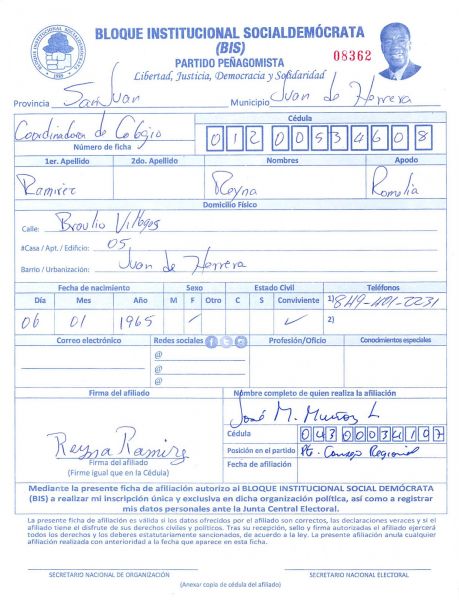 BLOQUE INSTITUCIONAL SOCIALDEMÓCRATA
(BIS)
PARTIDO PEÑAGOMISTA
08362
Libertad, Justicia, Democracia y Solidaridad
Provincia San Juan Municipio Juan de Herrera
Coordinadora de Colegio
Número de ficha
Cédula
01200534608
1er. Apellido 2do. Apellido Nombres Apodo
Ramirez Reyna Romelia
Domicilio Físico
Calle: Braulio Villegas
#Casa / Apt. / Edificio: 05
Barrio / Urbanización: Juan de Herrera
Fecha de nacimiento Sexo Estado Civil Teléfonos
Día Mes Año M F Otro C S Conviviente 1) 849-401-2231
06 01 1965 ✓ ✓ 2)
Correo electrónico Redes sociales Profesión/Oficio Conocimientos especiales
@
@
@
Firma del afiliado Nombre completo de quien realiza la afiliación
José M. Muñoz L
Reyna Ramirez
Cédula 04300034197
Firma del afiliado
(Firme igual que en la Cédula)
Posición en el partido Pte. Consejo Regional
Fecha de afiliación
Mediante la presente ficha de afiliación autorizo al BLOQUE INSTITUCIONAL SOCIAL DEMÓCRATA
(BIS) a realizar mi inscripción única y exclusiva en dicha organización política, así como a registrar
mis datos personales ante la Junta Central Electoral.
La presente ficha de afiliación es válida si los datos ofrecidos por el afiliado son correctos, las declaraciones veraces y si el
afiliado tiene el disfrute de sus derechos civiles y políticos. Tras su recepción, sello y firma autorizada el afiliado ejercerá
todos los derechos y los deberes estatutariamente sancionados, de acuerdo a la ley. La presente afiliación anula cualquier
afiliación realizada con anterioridad a la fecha que aparece en esta ficha.
SECRETARIO NACIONAL DE ORGANIZACIÓN SECRETARIO NACIONAL ELECTORAL
(Anexar copia de cédula del afiliado)